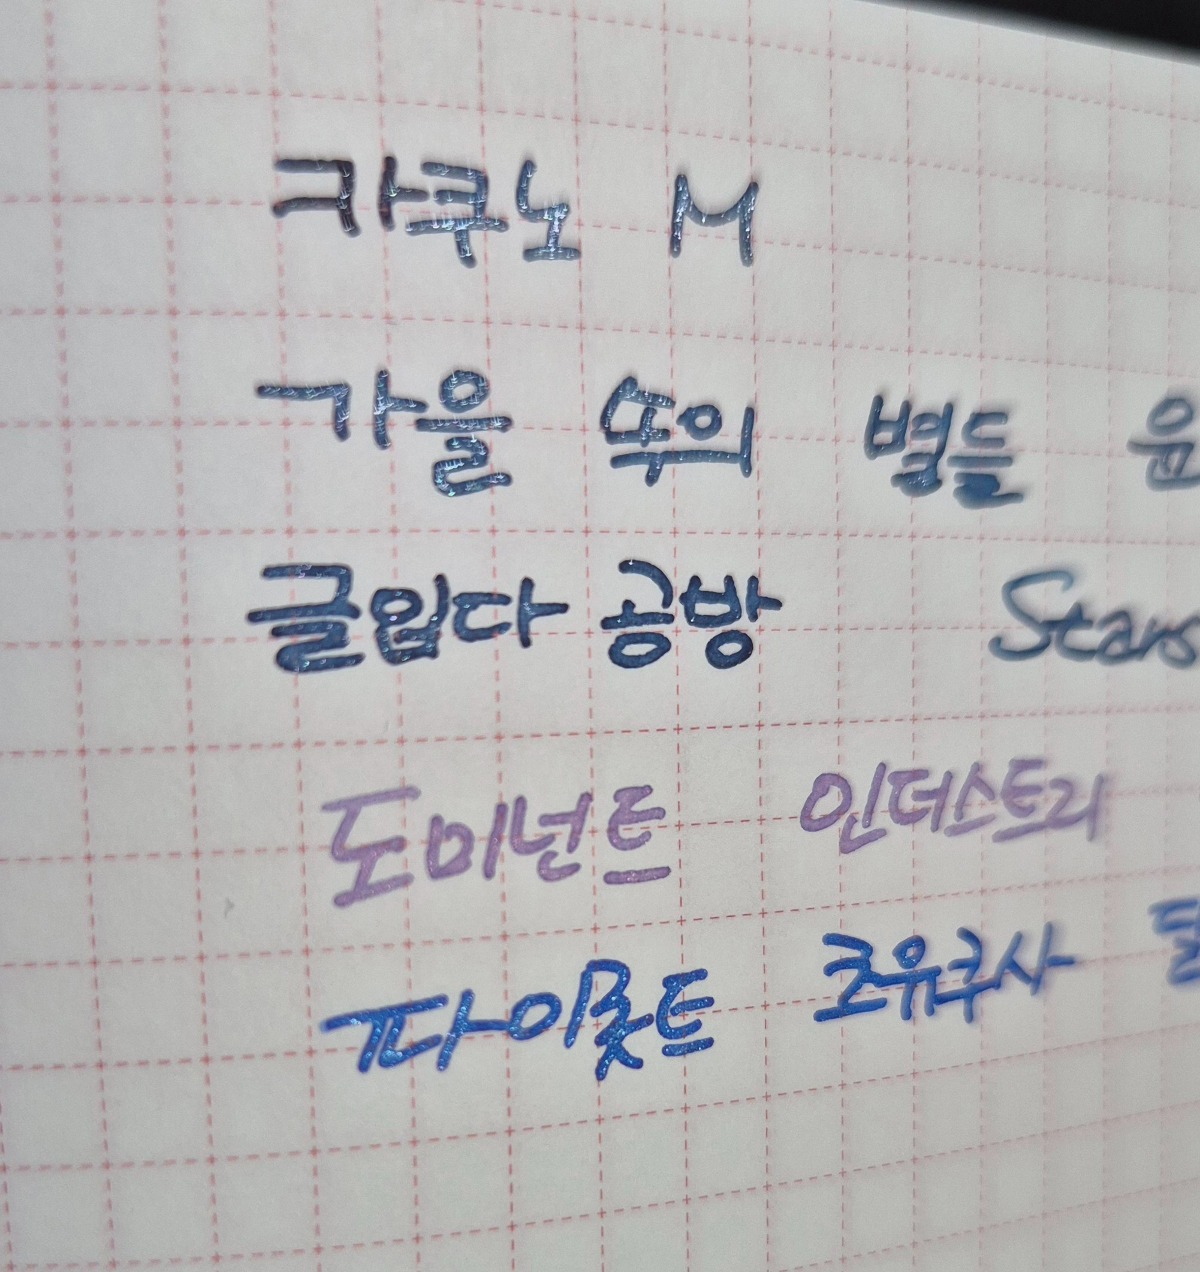 카쿠노 M
가을 속의 별들 윤
글입다 공방 Stars
도미넌트 인더스트리
파이롯트 조유쿠사